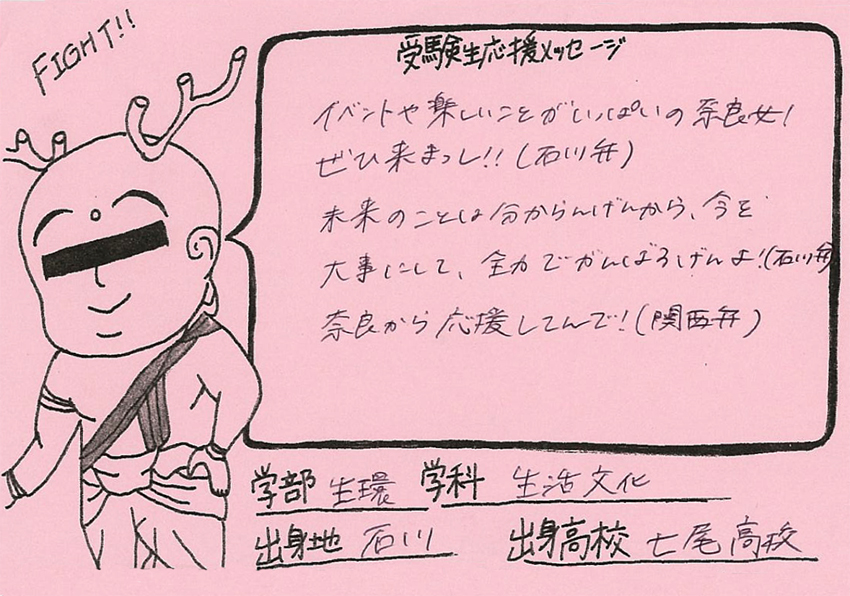 FIGHT!!
受験生応援メッセージ
イベントや楽しいことがいっぱいの奈良女!
ぜひ来まっし!!(石川弁)
未来のことは分からんげんから、今を
大事にして、全力でがんばろげんよ!(石川弁)
奈良から応援してんで!(関西弁)
学部 生環 学科 生活文化
出身地 石川 出身高校 七尾高校